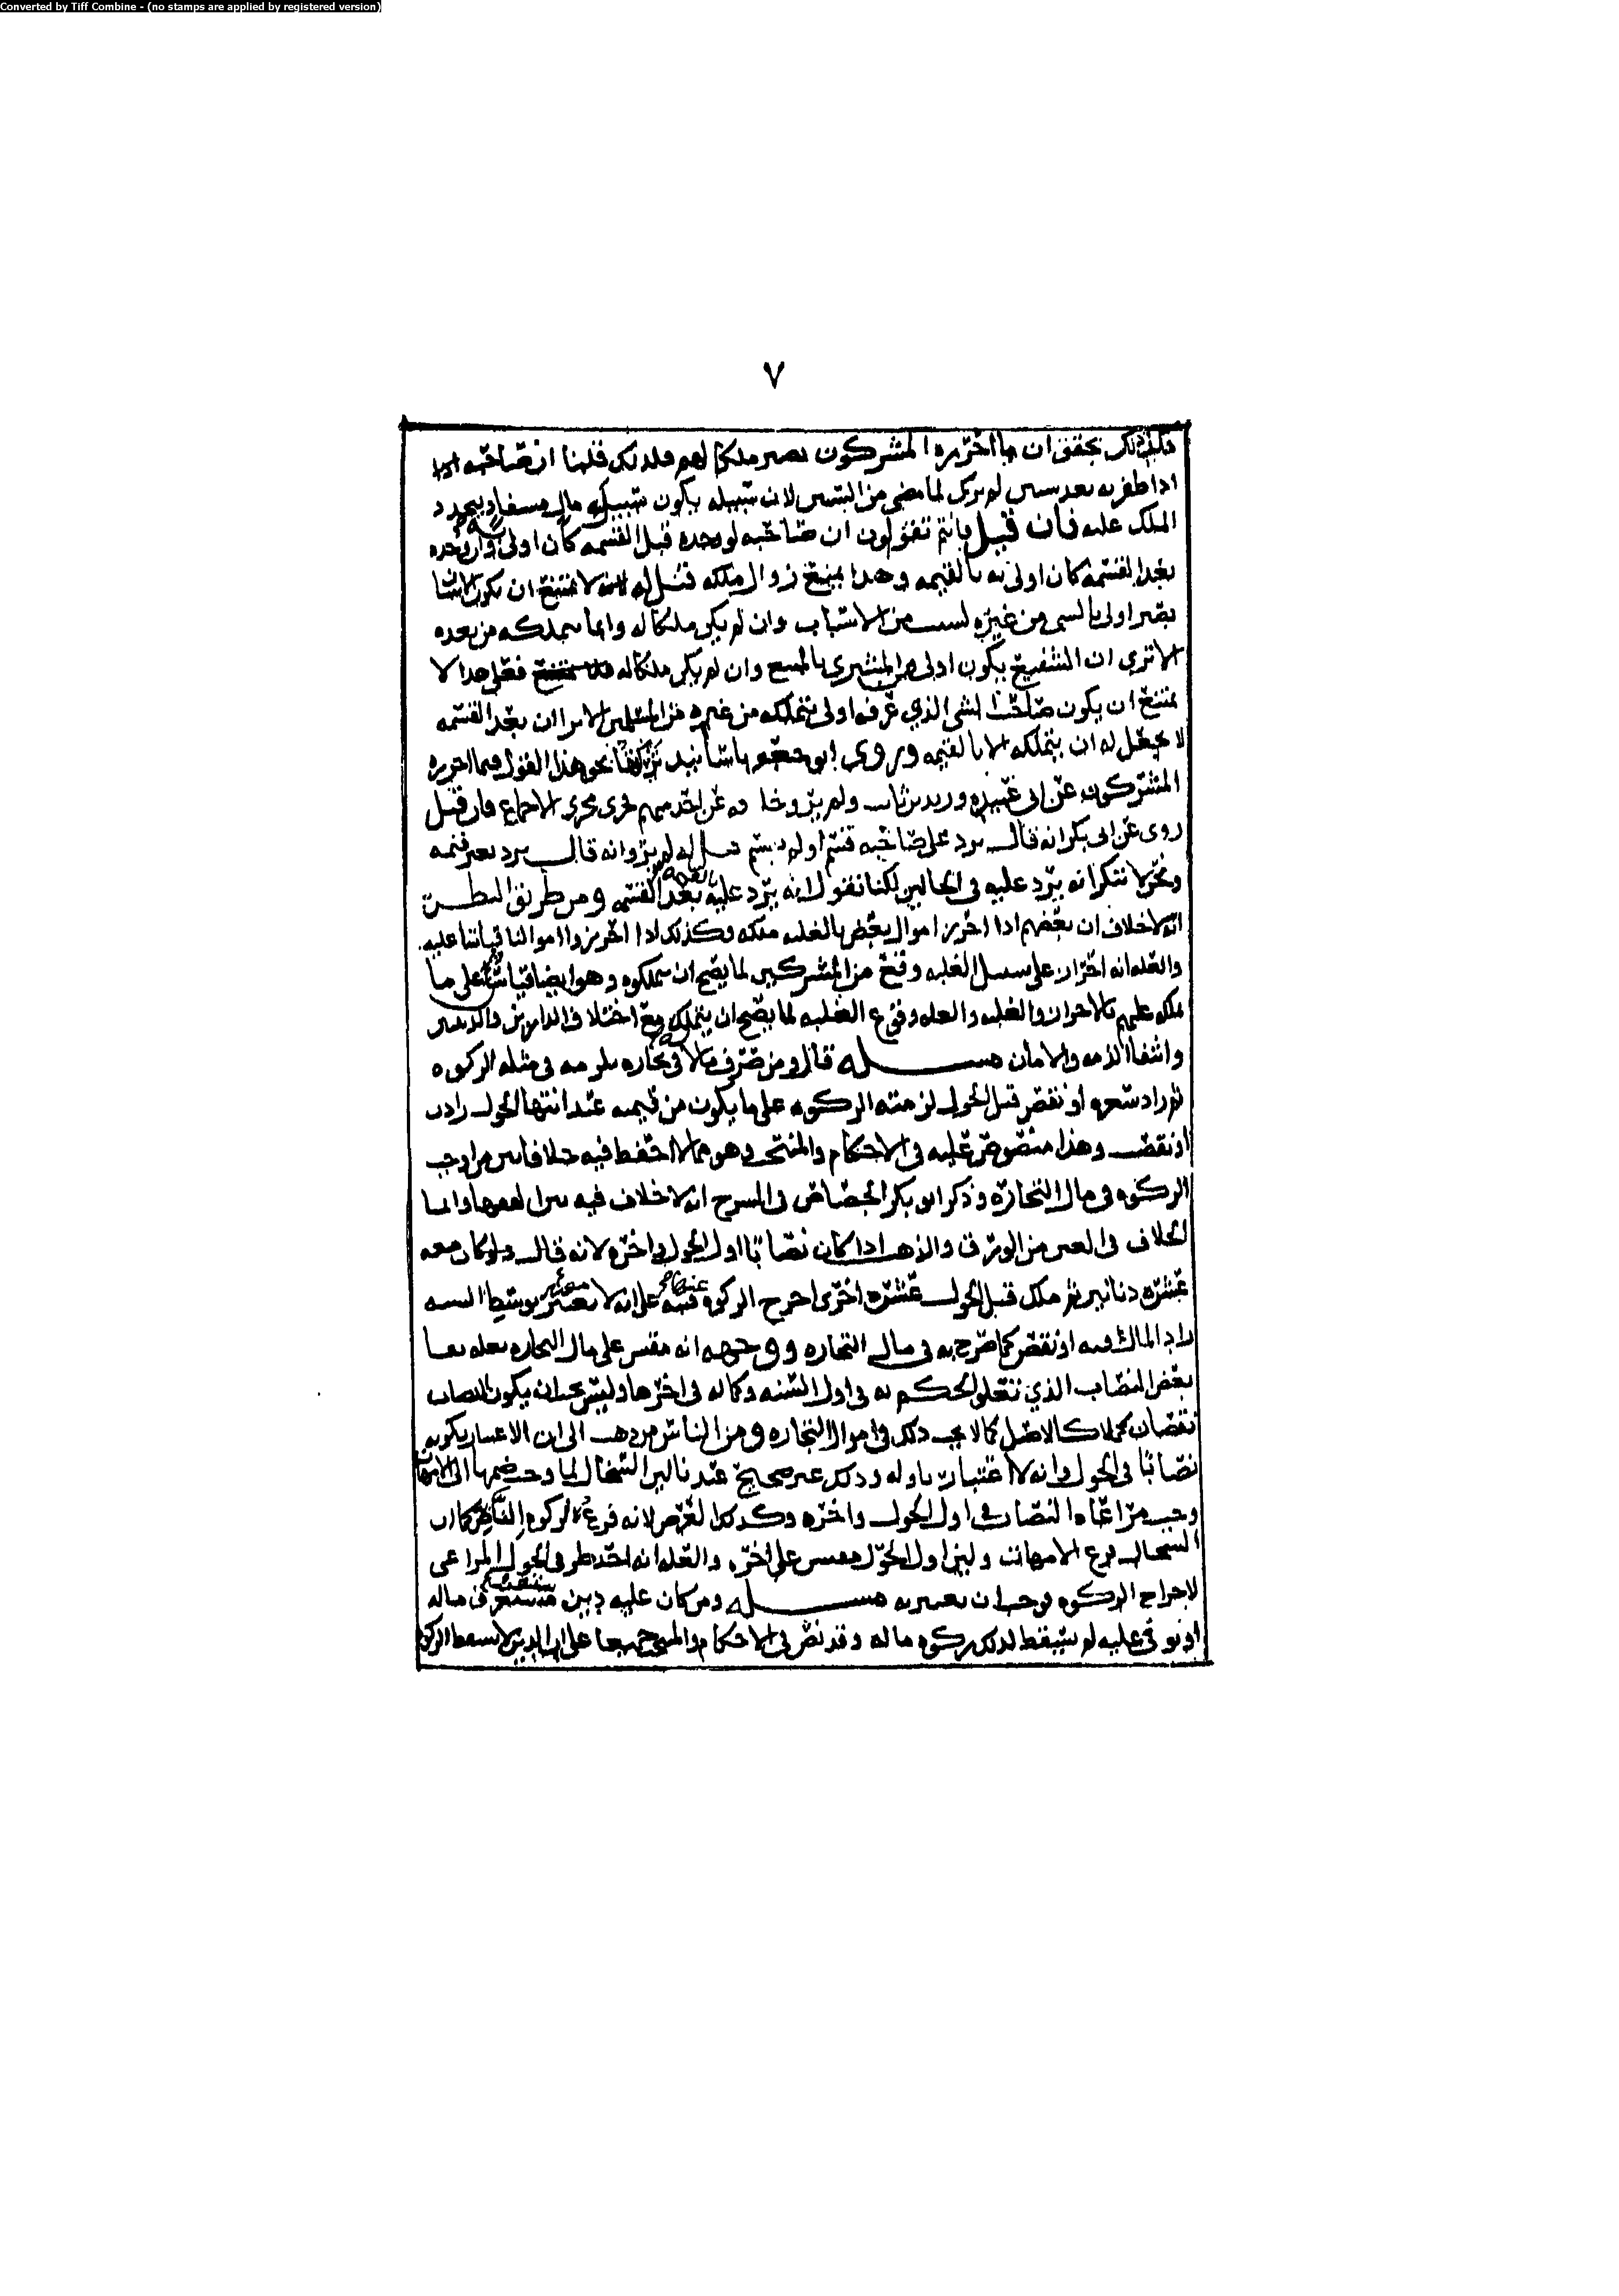 Converted by Tiff Combine - (no stamps are applied by registered version)
٧
فكل ذلك يحقق ان ما احرزه المشركون يصير ملكا لهم فلذلك قلنا ان صاحبه
اذا ظفر به بعد سنين لم يزك لما مضى من السنين لان سبيله يكون سبيل مال مستفاد يتجدد
الملك عليه فان قيل فانتم تقولون ان صاحبه لو وجده قبل القسمة كان اولى به وان وجده
بعد القسمة كان اولى به بالقيمه وهذا يمنع زوال ملكه قيل له لا يمتنع ان يكون الانسان
يصير اولى بالشي من غيره لسبب من الاسباب وان لم يكن ملكا له وانما يتملكه من بعده
الا ترى ان الشفيع يكون اولى من المشتري بالمبيع وان لم يكن ملكا له فعلى هذا لا
يمتنع ان يكون صاحب الشى الذي عرفه اولى بتملكه من غيره من المسلمين الا ترا ان بعد القسمه
لا يجعل له ان يتملكه الا بالقيمه وروى ابو جعفر باسانيد نحو هذا القول فيما احرزه
المشركون عن ابى عبيده وزيد بن ثابت ولم يرو خلافه عن احد منهم فجرى مجرى الاجماع فان قيل
روى عن ابى بكر انه قال يرد على صاحبه قسم او لم يقسم قيل له لم يرو انه قال يرد بغير قيمه
ونحن لا ننكر انه يرد عليه في الحالين لكنا نقول انه يرد عليه بعد القسمه بالقيمه ومن طريق النظر
انه لا خلاف ان بعضهم اذا احرز اموال بعض بالغلبه ملكه وكذلك اذا احرزوا اموالنا قياسا عليه
والعله انه احراز على سبيل الغلبه وقع من المشركين لما يصح ان يتملكوه وهو ايضا قياس على ما
ملكه عليهم بالاحراز والغلبه والعله وقوع الغلبه لما يصح ان يتملك مع اختلاف الدارين والدينين
وانتفا الذمه والامان مسئله قال ومن صرف مالا في تجاره يلزمه في مثله الزكوه
ثم زاد سعره او نقص قبل الحول لزمته الزكوه على ما يكون من قيمته عند انتها الحول زادت
او نقصت وهذا منصوص عليه في الاحكام والمنتخب وهو مما لا احفظ فيه خلافا بين من اوجب
الزكوه في مال التجارة وذكر ابو بكر الجصاص في الشرح انه لا خلاف فيه بين الفقهاء وانما
الخلاف في العين من الورق والذهب اذا كان نصابا اول الحول واخره لانه قال ولو كان معه
عشرة دنانير ثم ملك قبل الحول عشرة اخرى اخرج الزكوه على انه لا يعتبر بوسط السنه
زاد المال فيه او نقص كما صرح به في مال التجاره ووجهه انه مقيس على مال التجاره
بعض النصاب الذي تعلق الحكم به في اول السنه وكماله في اخرها وليس يجب ان يكون النصاب
نقصان كهلاك الاصل كما لا يجب ذلك في اموال التجاره ومن الناس من ذهب الى ان الاعتبار بكونه
نصابا في الحول وانه لا اعتبار باوله وذلك غير صحيح عندنا لان السخال لما وجب ضمها الى الامهات
وجب مراعاة النصاب في اول الحول واخره وكذلك لانه فرع كما ان
السخال فرع الامهات وليس اول الحول مقيس على اخره والعله انه احد طرفي الحول المراعى
لاخراج الزكوه فوجب ان يعتبر به مسئله ومن كان عليه دين يستغرق ماله
او نوى عليه لم يسقط لذلك زكوه ماله وقد نص في الاحكام والمنتخب جميعا على ان الدين لا يسقط الزكوه